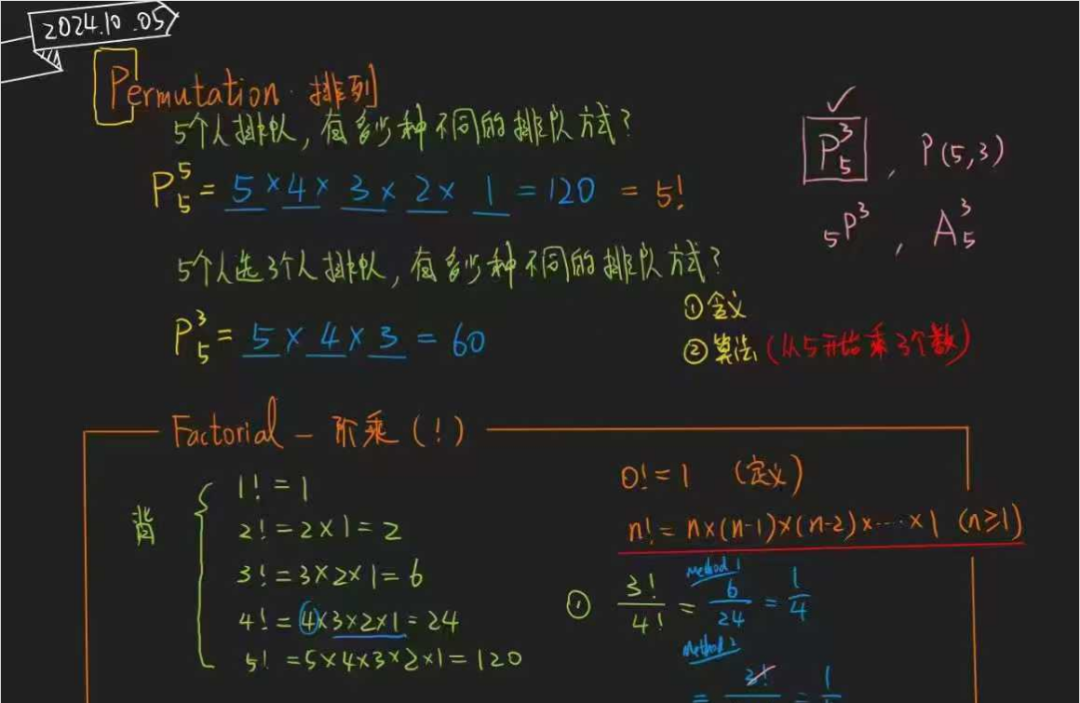 2024.10.05
Permutation 排列
5个人排队,有多少种不同的排队方式?
P₅⁵ = 5 × 4 × 3 × 2 × 1 = 120 = 5!
✓
P₅³ , P(5,3)
₅P³ , A₅³
5个人选3个人排队,有多少种不同的排队方式?
P₅³ = 5 × 4 × 3 = 60
①含义
②算法(从5开始乘3个数)
Factorial — 阶乘(!)
背
1! = 1
2! = 2×1 = 2
3! = 3×2×1 = 6
4! = 4×3×2×1 = 24
5! = 5×4×3×2×1 = 120
0! = 1 (定义)
n! = n×(n-1)×(n-2)×⋯×1 (n≥1)
Method 1
① 3!/4! = 6/24 = 1/4
Method 2
= 3!